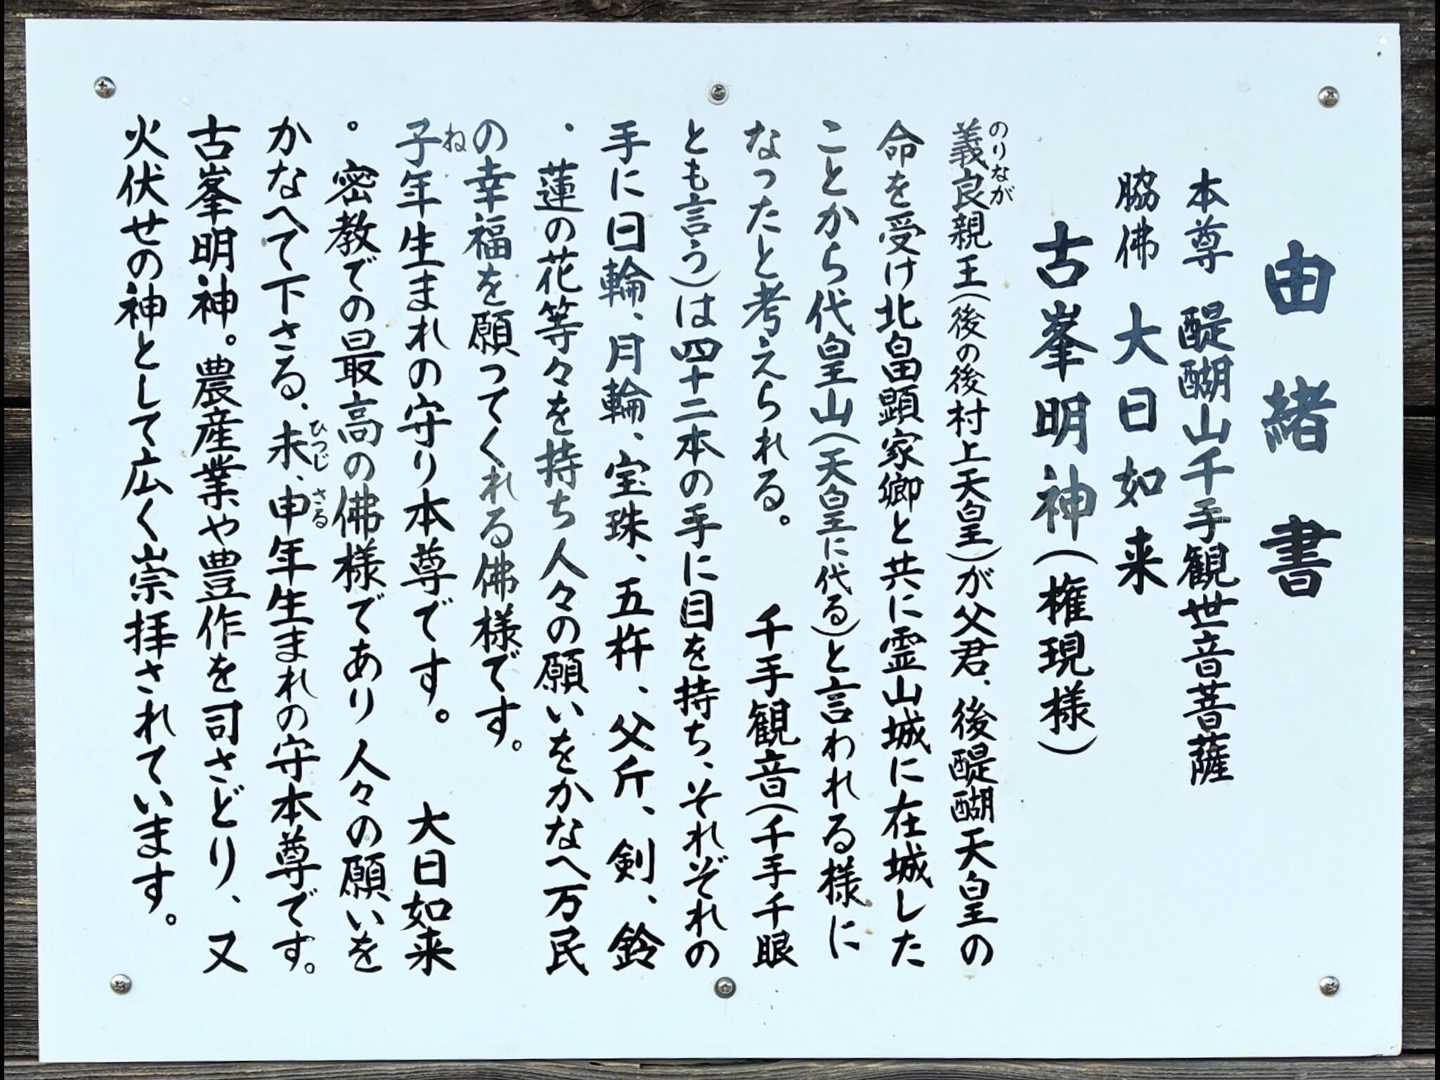 由緒書
本尊 醍醐山千手観世音菩薩
脇佛 大日如来
古峯明神(権現様)
義良親王(後の後村上天皇)が父君、後醍醐天皇の
のりなが
命を受け北畠顕家卿と共に霊山城に在城した
ことから代皇山(天皇に代る)と言われる様に
なったと考えられる。 千手観音(千手千眼
とも言う)は四十二本の手に目を持ち、それぞれの
手に日輪、月輪、宝珠、五杵、父斤、剣、鈴
、蓮の花等々を持ち人々の願いをかなへ万民
の幸福を願ってくれる佛様です。
子年生まれの守り本尊です。 大日如来
ね
。密教での最高の佛様であり人々の願いを
かなへて下さる、未、申年生まれの守本尊です。
ひつじ さる
古峯明神。農産業や豊作を司さどり、又
火伏せの神として広く崇拝されています。